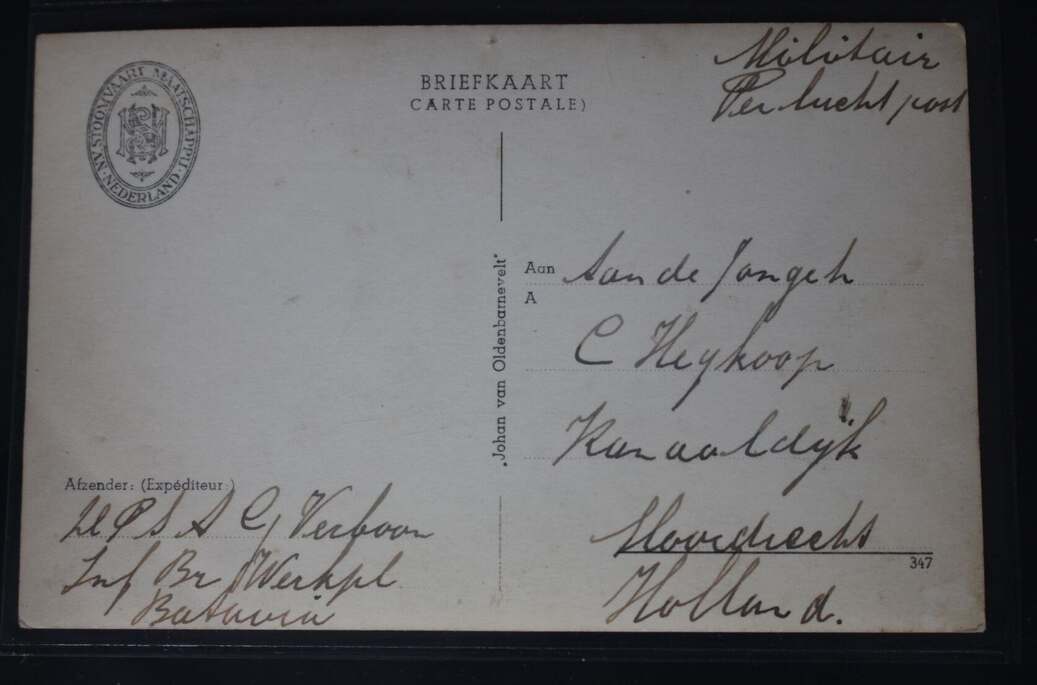 N.V. STOOMVAART MAATSCHAPPIJ
NEDERLAND
SMN
BRIEFKAART
CARTE POSTALE)
Militair
Per luchtpost
"Johan van Oldenbarnevelt"
Aan Aan de Jongeh
A
C Heykoop
Kanaaldijk
Moordrecht
347
Holland.
Afzender: (Expéditeur:)
A C J Verboon
Inf Br Werkpl
Batavia